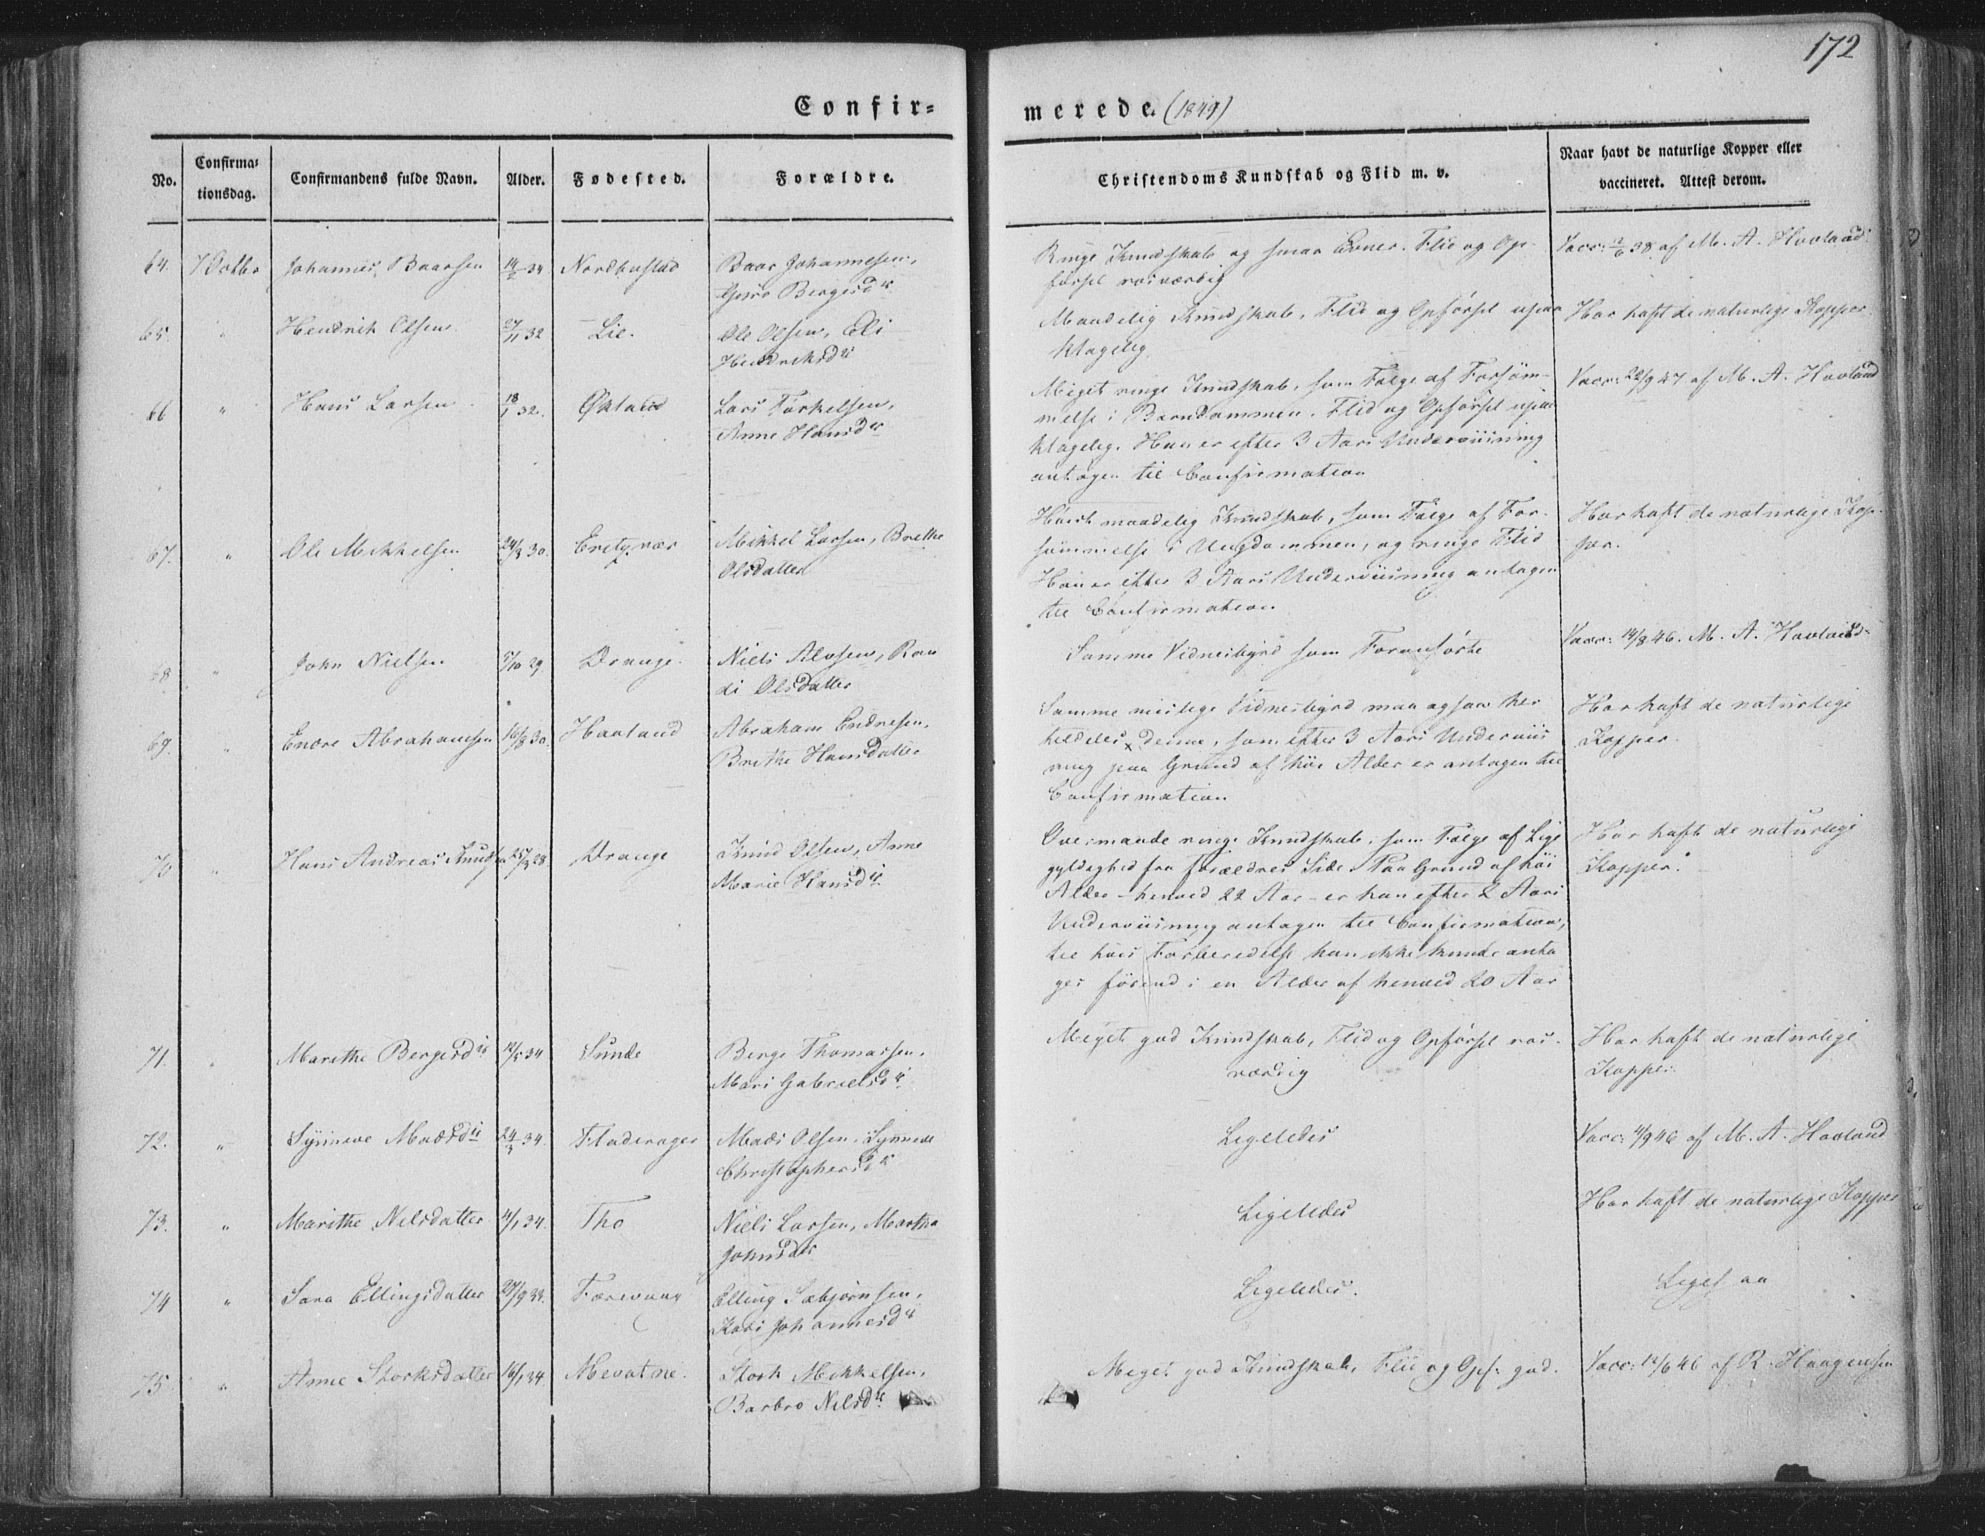 172
Confir=
merede. (1849)
No.
Confirma=
tionsdag.
Confirmandens fulde Navn.
Alder.
Fødested.
Forældre.
Christendoms Kundskab og Flid m. v.
Naar havt de naturlige Kopper eller
vaccineret. Attest derom.
64. 7 Octbr Johannes Baarsen 14/2 34 Nordhustad Baar Johannesen,
Guro Bergesd
Ringe Kundskab og smaa Evner. Flid og Op-
førsel rosværdig
Vacc: 12/6 38 af M. A. Havland
65. " Hendrik Olsen 27/11 32 Lie. Ole Olsen, Eli
Hendriksd
Maadelig Kundskab, Flid og Opførsel upaa
klagelig
Har haft de naturlige Kopper
66 " Hans Larsen 18/1 32. Økland Lars Torkelsen,
Anne Hansd
Meget ringe Kundskab, som Følge af Forsøm-
melse i Barndommen. Flid og Opførsel upaa
klagelig. Han er efter 3 Aars Underviisning
antagen til Confirmation
Vacc: 22/9 47 af M. A. Havland
67. " Ole Mikkelsen 24/3 30. Mikkel Larsen, Brethe
Olsdatter
Høist maadelig Kundskab, som Følge af For-
sømmelse i Ungdommen, og ringe Flid
Han er efter 3 Aars Underviisning antagen
til Confirmation
Har haft de naturlige Kop-
per.
68 " John Nielsen 5/10 29. Drange. Niels Alvsen, Ran
di Olsdatter
Samme Vidnesbyrd som Foranførte
Vacc: 14/8 46. M. A. Havland
69. " Endre Abrahamsen 16/8 30. Haaland Abraham Endresen,
Brithe Hansdatter
Samme Vidnesbyrd maa ogsaa her
meddeles denne, som efter 3 Aars Underviis
ning paa Grund af høi Alder er antagen til
Confirmation
Har haft de naturlige
Kopper.
70 " Hans Andreas Knudsen 28 Drange Knud Olsen, Anne
Marie Hansd
Overmaade ringe Kundskab, som Følge af Lige
gyldighed fra Forældres Side. Paa Grund af høi
Alder - henved 22 Aar - er han efter 2 Aars
Underviisning antagen til Confirmation,
til hvis Forberedelse han ikke kunde anta
ges førend i en Alder af henved 20 Aar
Har haft de naturlige
Kopper.
71. " Marithe Bergesd 12/5 34 Sunde Berge Thomassen,
Mari Gabrielsd
Meget god Kundskab, Flid og Opførsel ros-
værdig
Har haft de naturlige
Kopper.
72. " Synneve Madsd 24/3 34. Fladerager Mads Olsen, Synneve
Christophersd
Ligeledes
Vacc: 4/9 46 af M. A. Havland
73. " Marithe Nilsdatter 4/1 34. Tho Niels Larsen, Martha
Johnsd
Ligeledes
Har haft de naturlige Kopper
74 " Sara Ellingsdatter 27/9 33. Færevaag Elling Sæbjørnsen,
Kari Johannesd
Ligeledes.
Ligesaa
75. " Anne Storksdatter 16/1 34. Mevatne. Stork Mikkelsen,
Barbro Nilsd
Meget god Kundskab, Flid og Opf: god.
Vacc: 12/6 46 af R. Haagensen